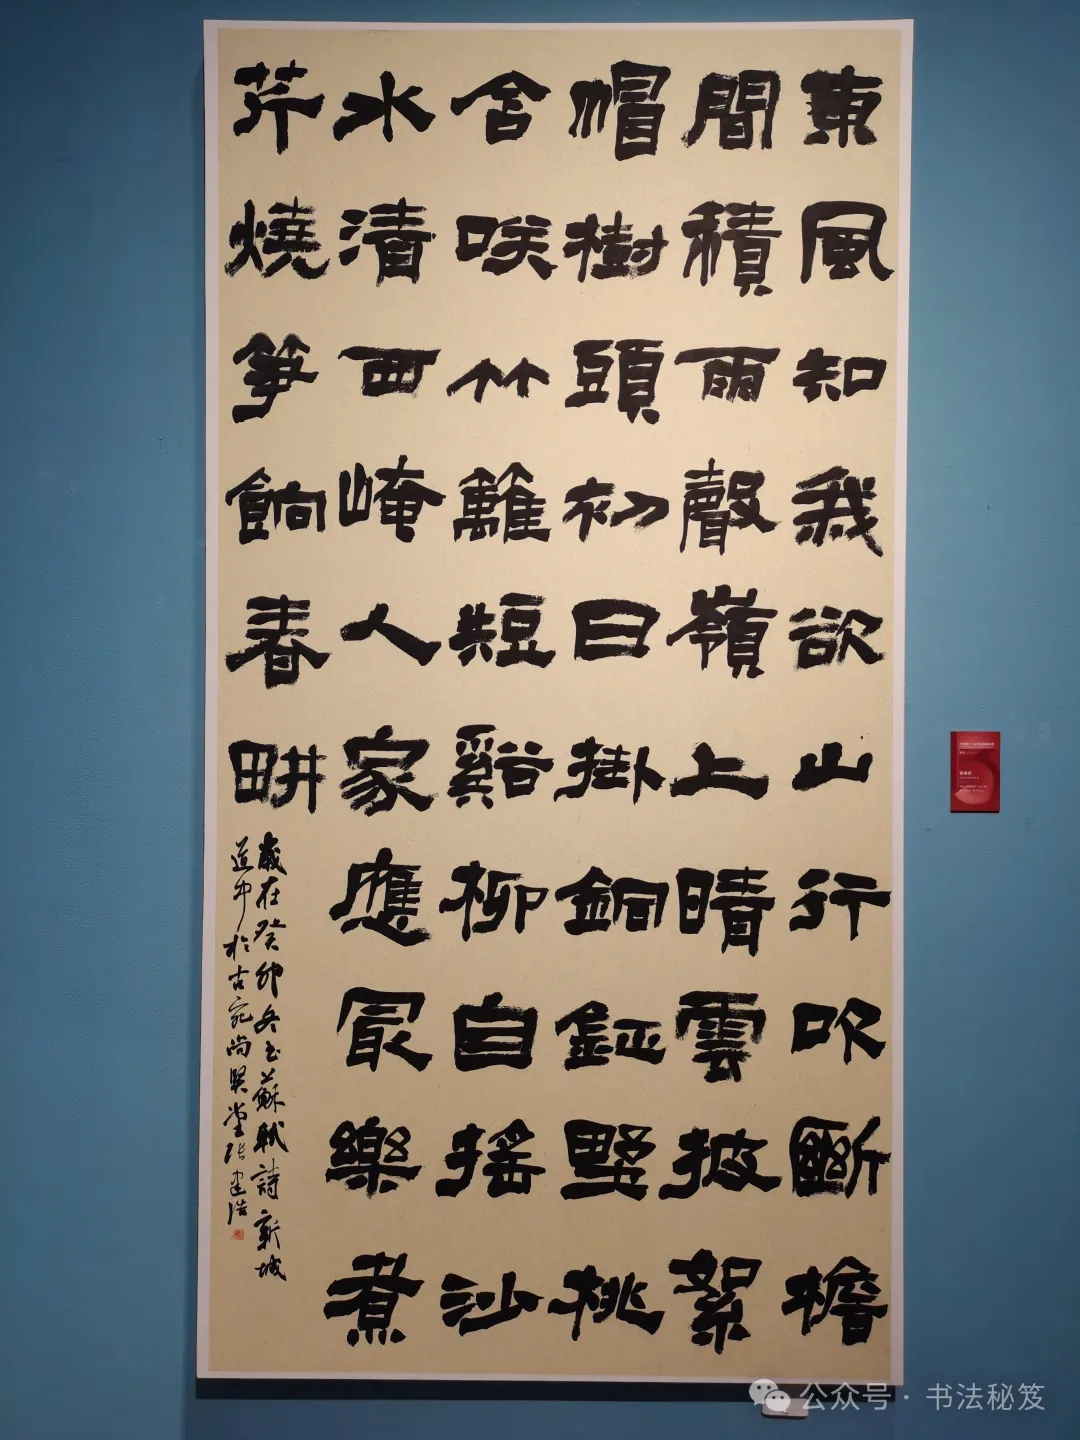 東風知我欲山行吹斷檐
間積雨聲嶺上晴雲披絮
帽樹頭初日掛銅鉦野桃
含咲竹籬短谿柳自搖沙
水清西崦人家應冣樂煮
芹燒笋餉春畊
歲在癸卯冬玉蘇軾詩新城
道中於古宛尚賢堂張建浩
公众号·书法秘笈